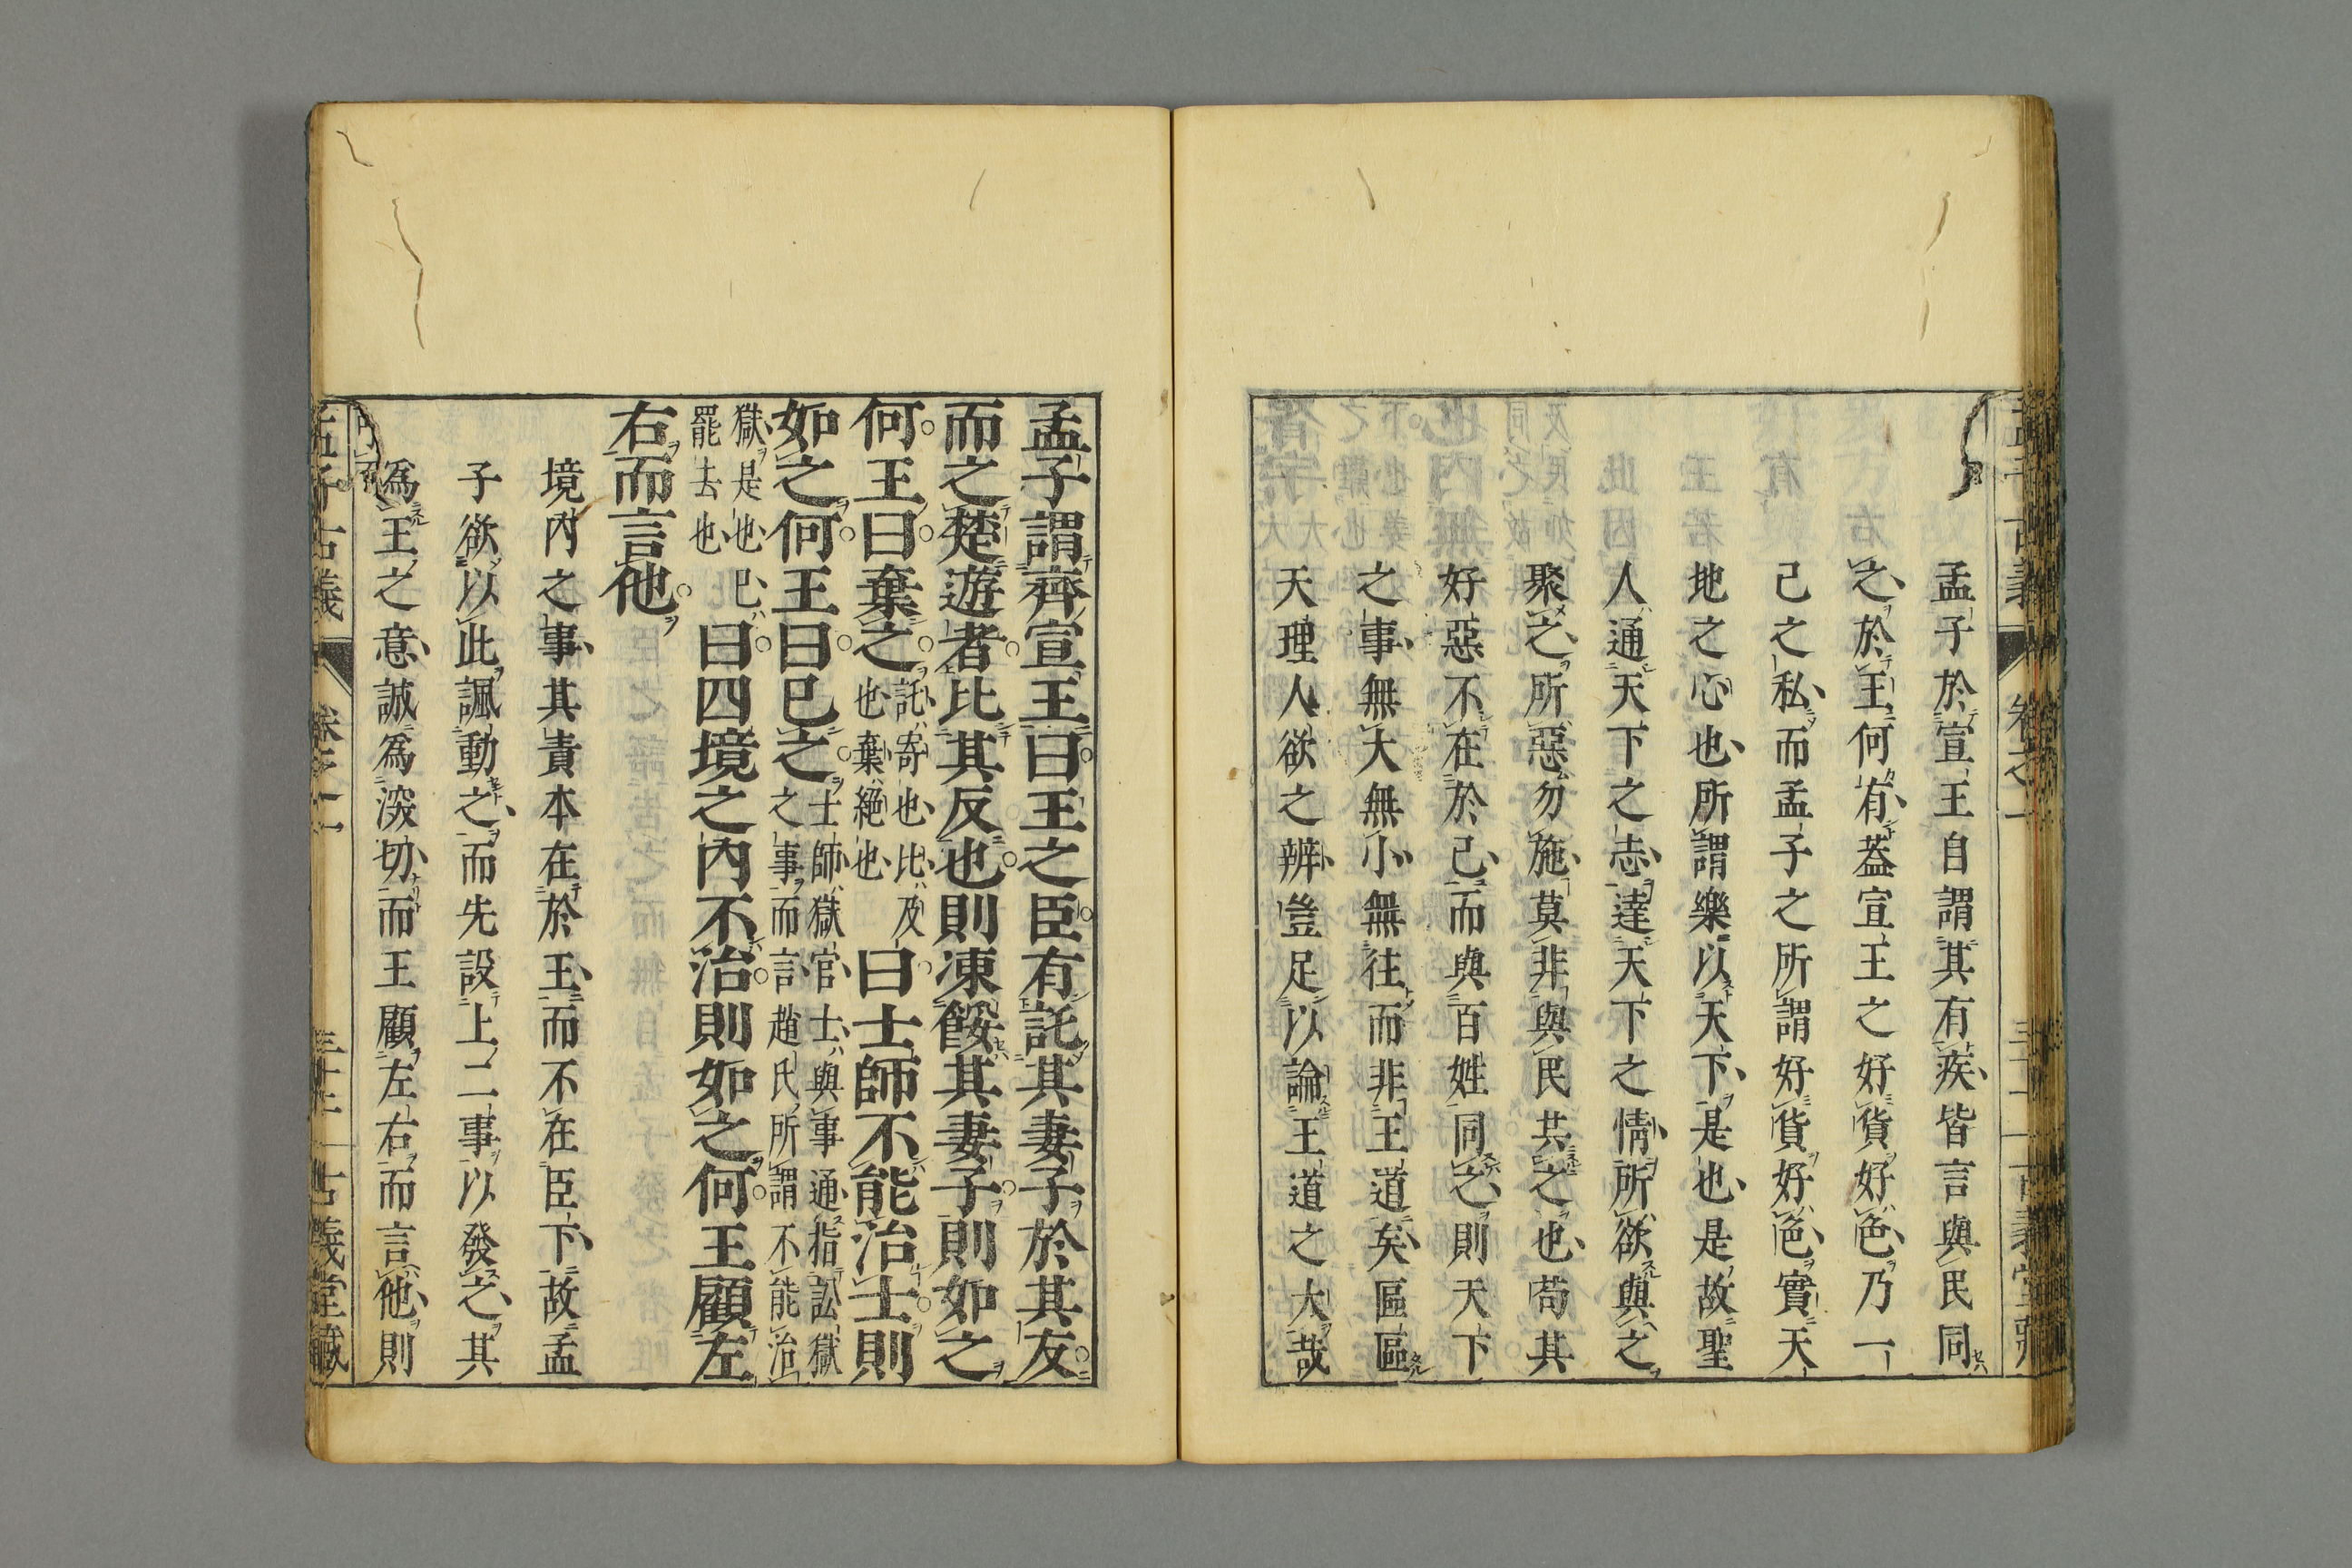 孟子於宣王自謂其有疾皆言與民同
之於王何有葢宣王之好貨好色乃一
己之私而孟子之所謂好貨好色實天
地之心也所謂樂以天下是也是故聖
人通天下之志達天下之情所欲與之
聚之所惡勿施莫非與民共之也苟其
好惡不在於己而與百姓同之則天下
之事無大無小無往而非王道矣區區
天理人欲之辨豈足以論王道之大哉
孟子謂齊宣王曰王之臣有託其妻子於其友
而之楚遊者比其反也則凍餒其妻子則如之
何王曰棄之託寄也比及也棄絕也曰士師不能治士則
如之何王曰已之士師獄官士與事通指訟獄之事而言趙氏所謂不能治
獄是也已罷去也曰四境之內不治則如之何王顧左
右而言他
境內之事其責本在於王而不在臣下故孟
子欲以此諷動之而先設上二事以發之其
爲王之意誠爲深切而王顧左右而言他則
孟子古義 卷之一 古義堂藏